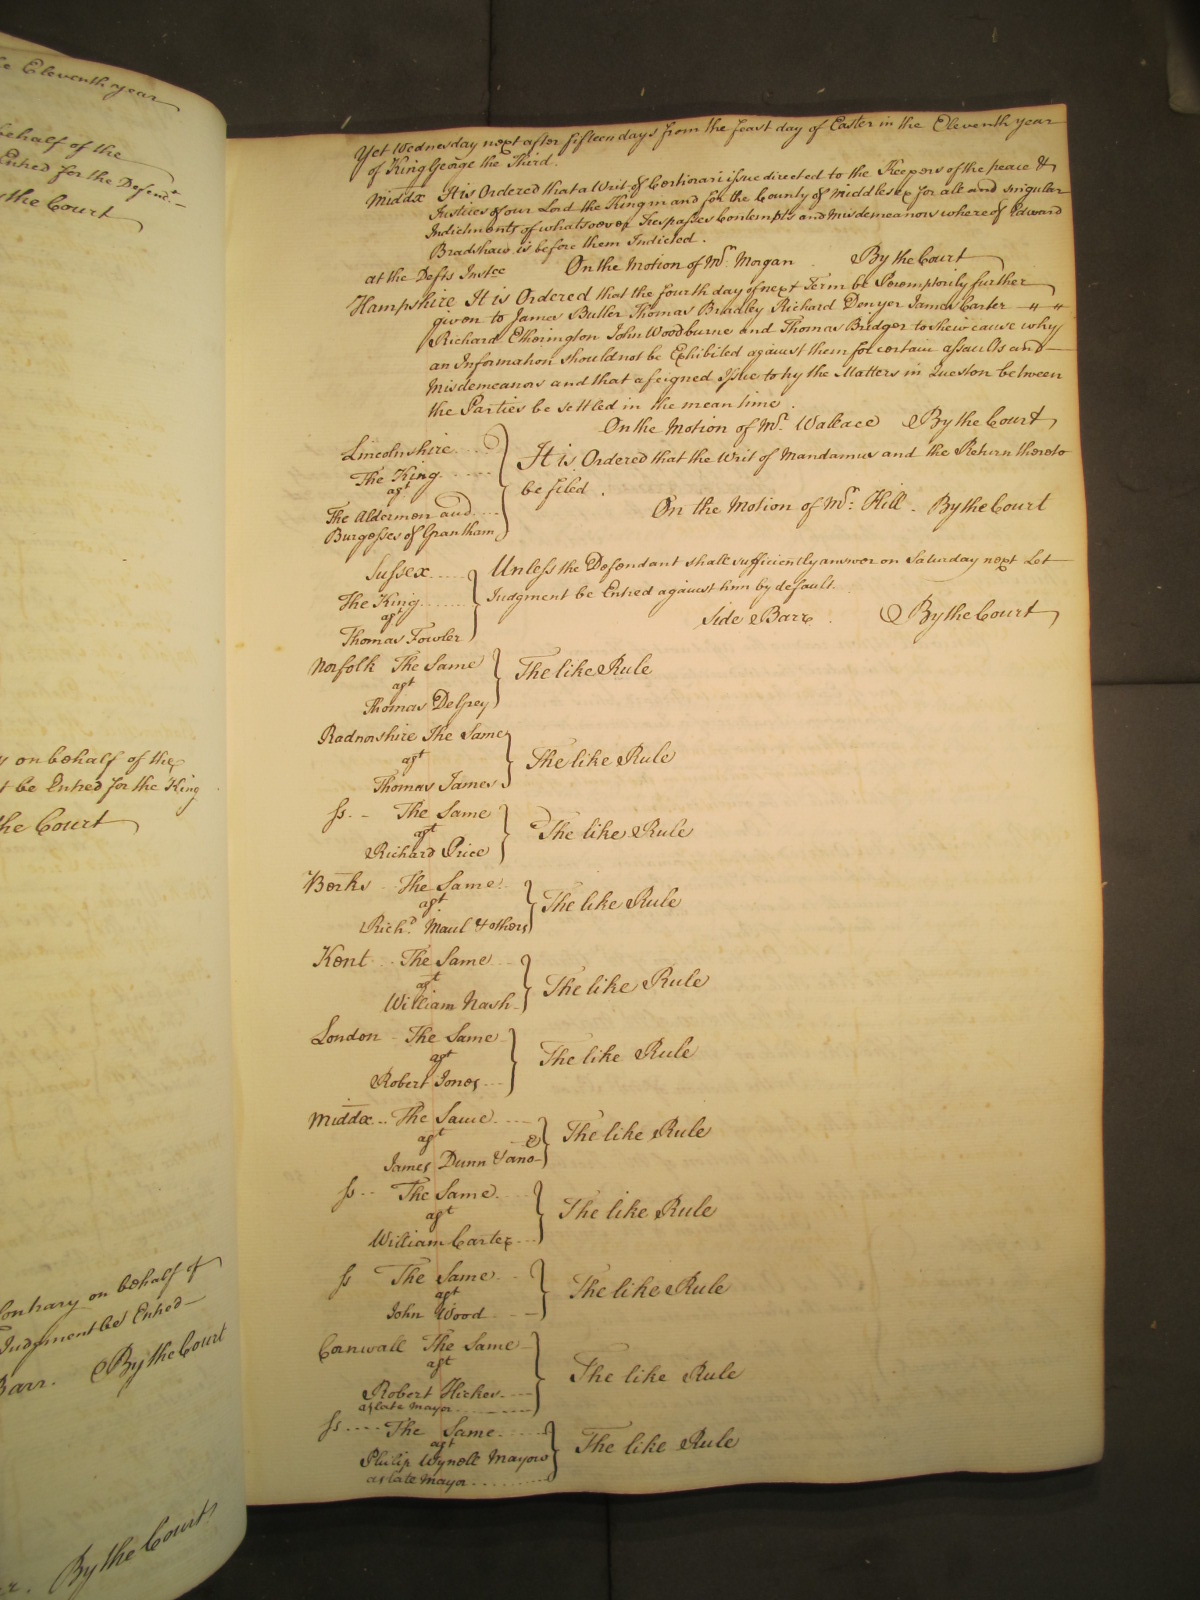 e Eleventh year
behalf of the
Entred for the Defend.t
y the Court
y on behalf of the
t be Entred for the King
he Court
Contrary on behalf of
Judgment be Entred
Barr. By the Court
By the Court
Yet Wednesday next after fifteen days from the feast day of Easter in the Eleventh year
of King George the Third.
Middx It is Ordered that a Writ of Certiorari issue directed to the Keepers of the peace &
Justices of our Lord the King in and for the County of Middlesex for all and singular
Indictments of whatsoever Trespasses Contempts and Misdemeanors whereof Edward
Bradshaw is before them Indicted.
at the Defts Instce On the Motion of Mr. Morgan By the Court
Hampshire It is Ordered that the fourth day of next Term be Peremptorily further
given to James Butler Thomas Bradley Richard Denyer James Carter
Richard Etherington John Woodburne and Thomas Bridger to shew cause why
an Information should not be Exhibited against them for certain assaults and
Misdemeanors and that a feigned Issue to try the Matters in Queston between
the Parties be settled in the mean time.
On the Motion of Mr. Wallace By the Court
Lincolnshire
The King
agt
The Aldermen and
Burgesses of Grantham
It is Ordered that the Writ of Mandamus and the Return thereto
be filed.
On the Motion of Mr. Hill. By the Court
Sussex
The King
agt
Thomas Fowler
Unless the Defendant shall sufficiently answer on Saturday next Let
Judgment be Entred against him by default.
Side Barr. By the Court
Norfolk The Same
agt
Thomas Delpey
The like Rule
Radnorshire The Same
agt
Thomas James
The like Rule
Ss. The Same
agt
Richard Price
The like Rule
Berks The Same
agt
Richd. Maul & others
The like Rule
Kent The Same
agt
William Nash
The like Rule
London The Same
agt
Robert Jones
The like Rule
Middx The Same
agt
James Dunn & ano
The like Rule
Ss The Same
agt
William Carter
The like Rule
Ss The Same
agt
John Wood
The like Rule
Cornwall The Same
agt
Robert Hickes
as late mayor
The like Rule
Ss The Same
agt
Philip Wynell Mayow
as late mayor
The like Rule